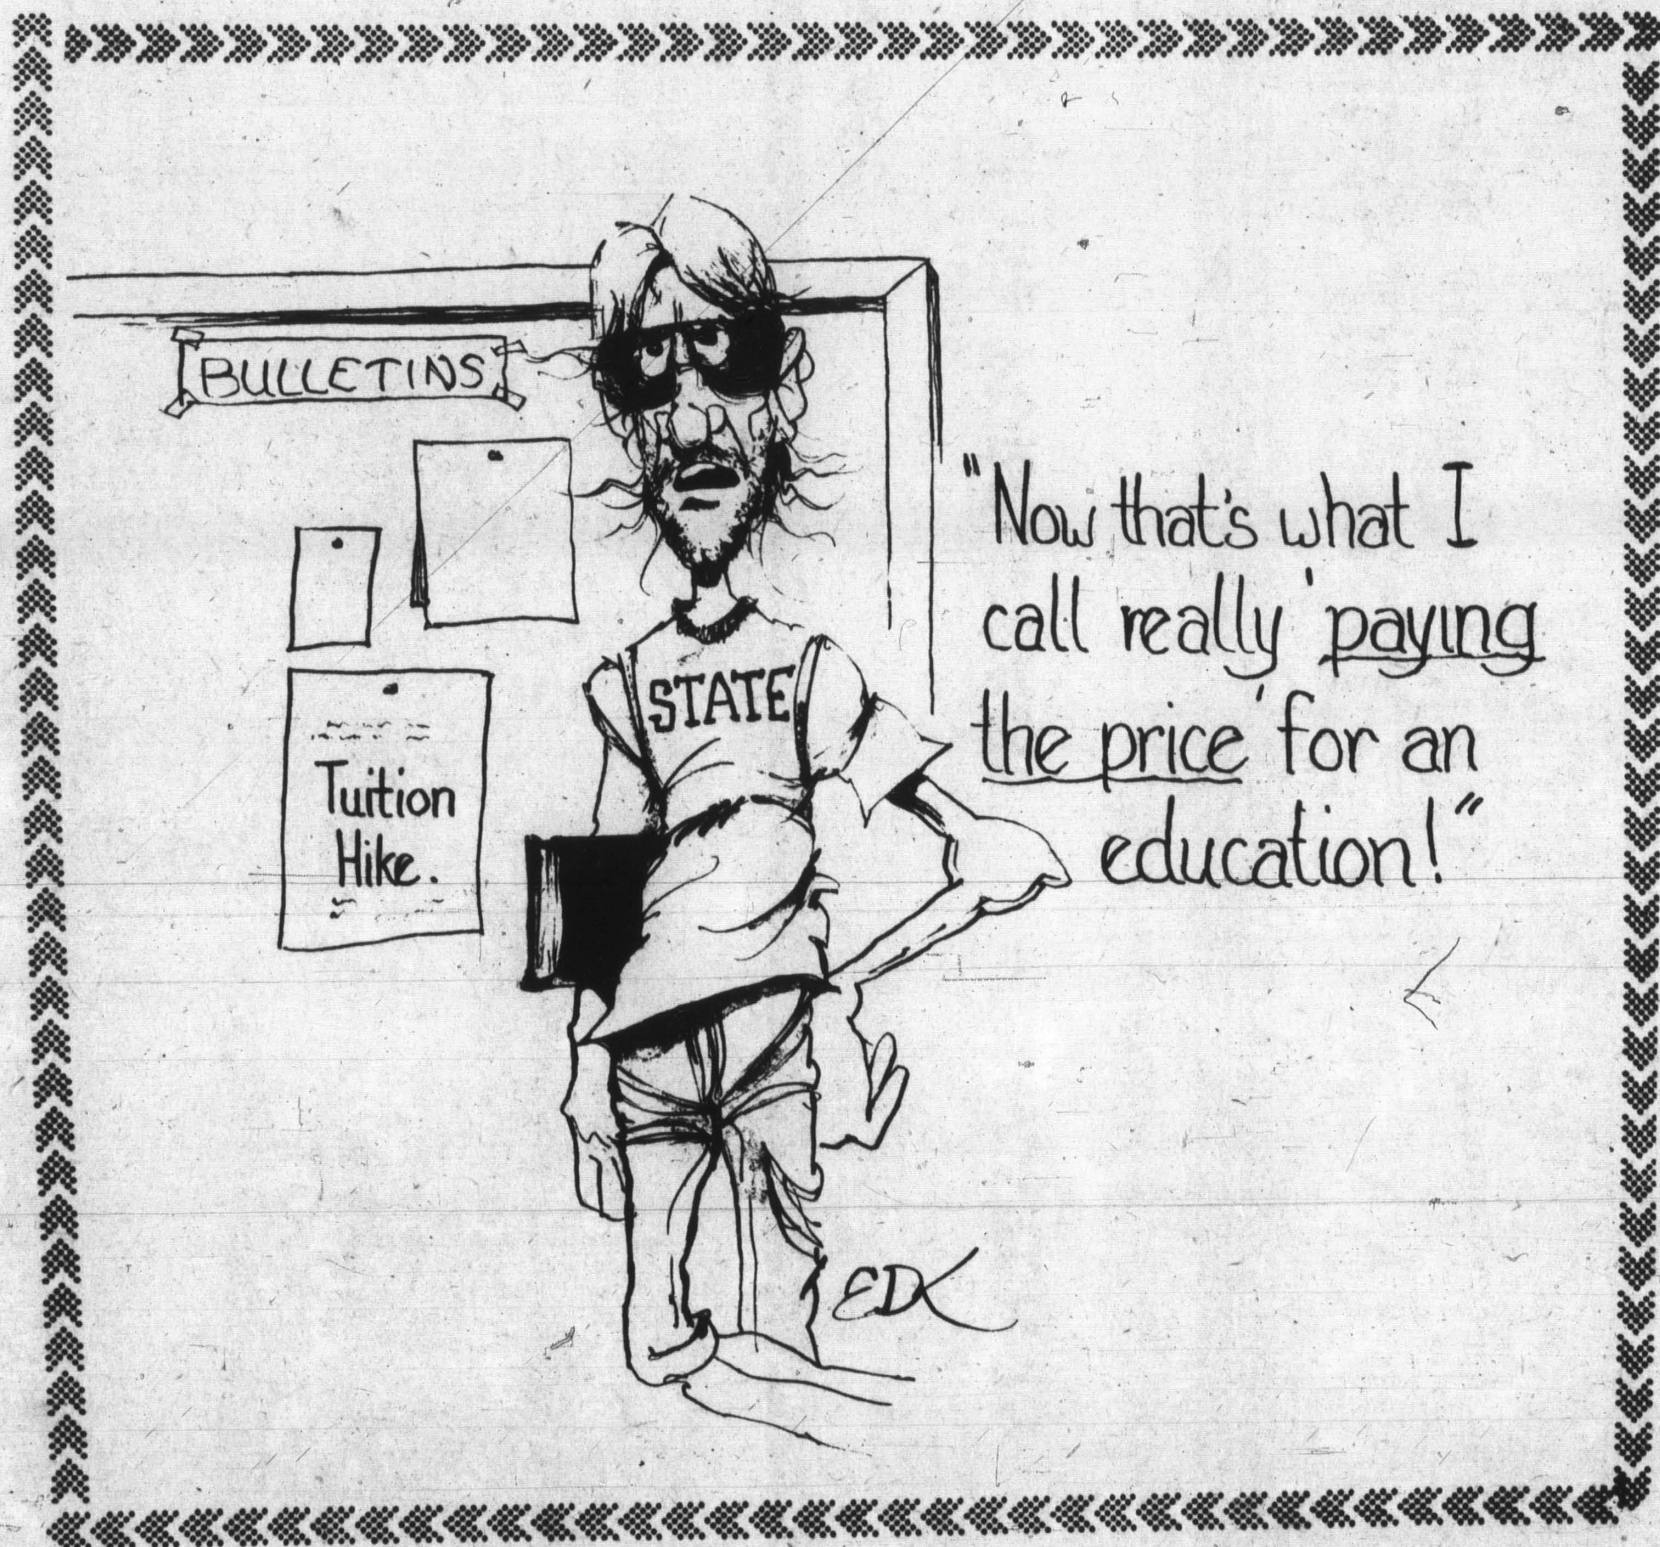 BULLETINS
Tuition
Hike.
STATE
"Now that's what I
call really 'paying
the price' for an
education!"
EDK